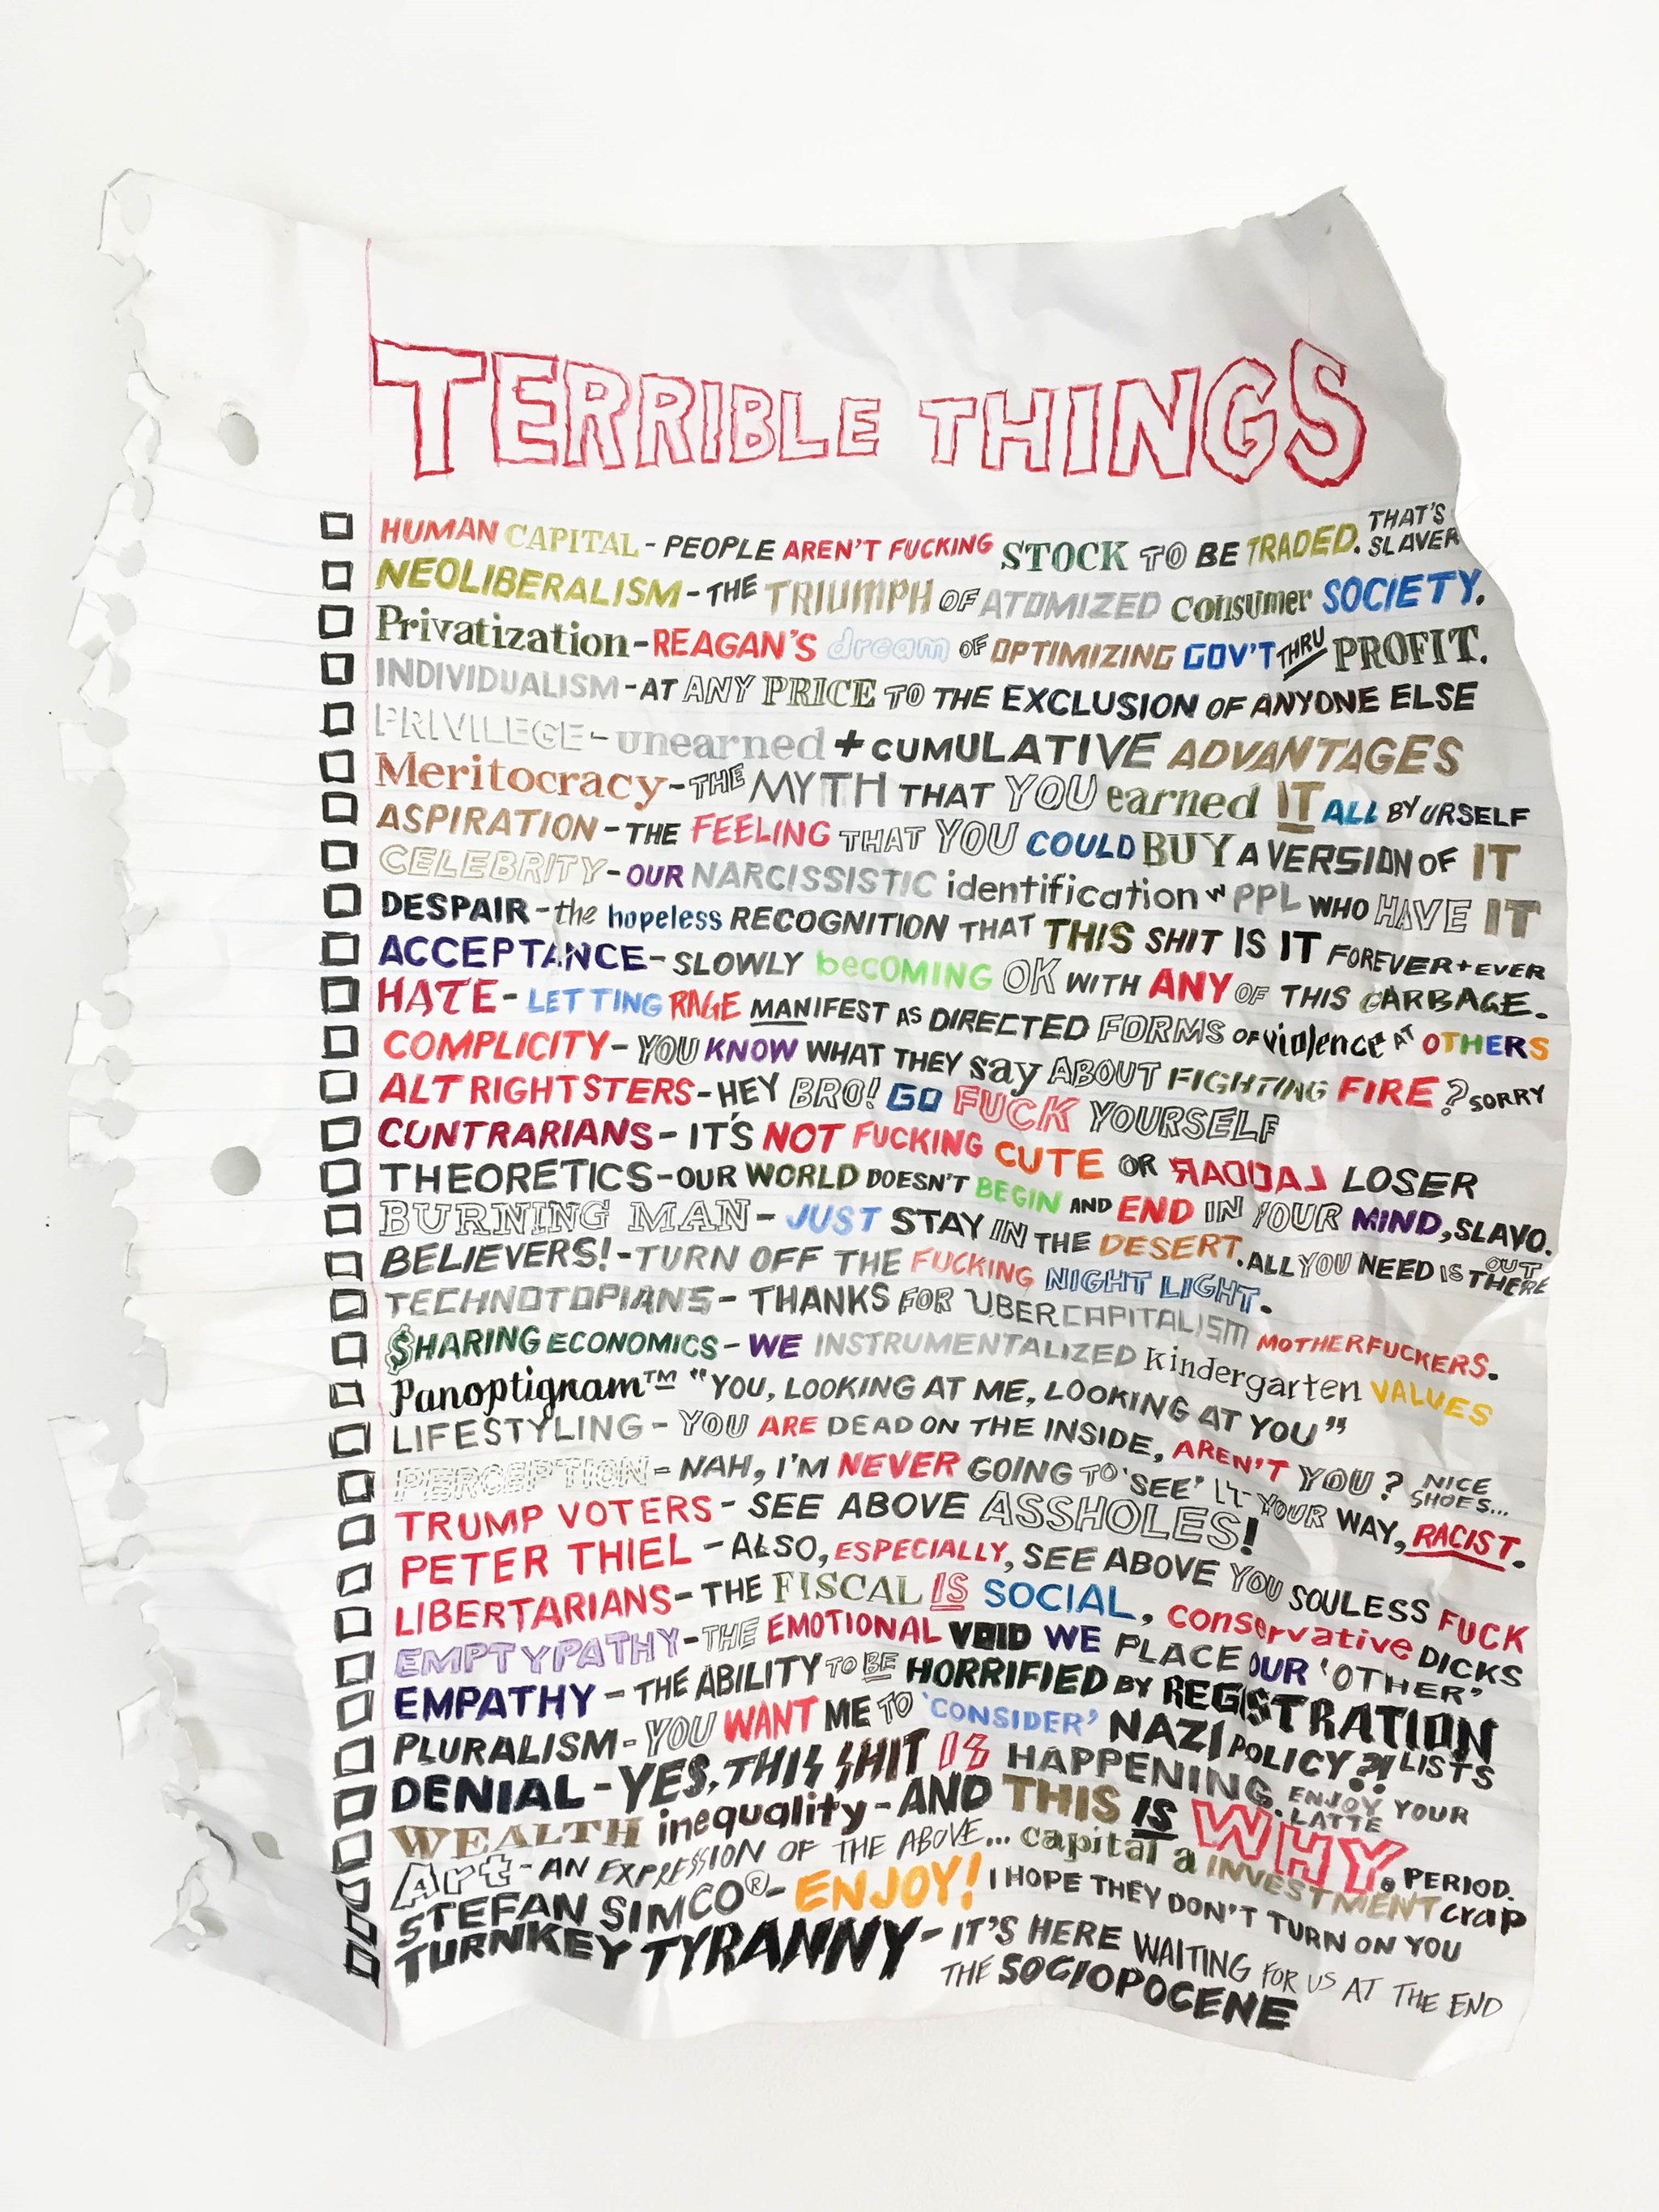 TERRIBLE THINGS
HUMAN CAPITAL - PEOPLE AREN'T FUCKING STOCK TO BE TRADED. THAT'S SLAVER
NEOLIBERALISM - THE TRIUMPH OF ATOMIZED Consumer SOCIETY.
Privatization - REAGAN'S dream OF OPTIMIZING GOV'T THRU PROFIT.
INDIVIDUALISM - AT ANY PRICE TO THE EXCLUSION OF ANYONE ELSE
PRIVILEGE - unearned + CUMULATIVE ADVANTAGES
Meritocracy - THE MYTH THAT YOU earned IT ALL BY URSELF
ASPIRATION - THE FEELING THAT YOU COULD BUY A VERSION OF IT
CELEBRITY - OUR NARCISSISTIC identification w PPL WHO HAVE IT
DESPAIR - the hopeless RECOGNITION THAT THIS SHIT IS IT FOREVER + EVER
ACCEPTANCE - SLOWLY becOMING OK WITH ANY OF THIS GARBAGE.
HATE - LETTING RAGE MANIFEST AS DIRECTED FORMS OF violence AT OTHERS
COMPLICITY - YOU KNOW WHAT THEY say ABOUT FIGHTING FIRE? SORRY
ALT RIGHTSTERS - HEY BRO! GO FUCK YOURSELF
CONTRARIANS - IT'S NOT FUCKING CUTE OR RADICAL LOSER
THEORETICS - OUR WORLD DOESN'T BEGIN AND END IN YOUR MIND, SLAVO.
BURNING MAN - JUST STAY IN THE DESERT. ALL YOU NEED IS OUT THERE
BELIEVERS! - TURN OFF THE FUCKING NIGHT LIGHT.
TECHNOTOPIANS - THANKS FOR ÜBERCAPITALISM MOTHERFUCKERS.
$HARING ECONOMICS - WE INSTRUMENTALIZED Kindergarten VALUES
Panoptigram™ "YOU, LOOKING AT ME, LOOKING AT YOU"
LIFESTYLING - YOU ARE DEAD ON THE INSIDE, AREN'T YOU? NICE SHOES...
PERCEPTION - NAH, I'M NEVER GOING TO 'SEE' IT YOUR WAY, RACIST.
TRUMP VOTERS - SEE ABOVE ASSHOLES!
PETER THIEL - ALSO, ESPECIALLY, SEE ABOVE YOU SOULESS FUCK
LIBERTARIANS - THE FISCAL IS SOCIAL, conservative DICKS
EMPTYPATHY - THE EMOTIONAL VOID WE PLACE OUR 'OTHER'
EMPATHY - THE ABILITY TO BE HORRIFIED BY REGISTRATION LISTS
PLURALISM - YOU WANT ME TO 'CONSIDER' NAZI POLICY?!
DENIAL - YES, THIS SHIT IS HAPPENING. ENJOY YOUR LATTE
WEALTH inequality - AND THIS IS WHY. PERIOD.
Art - AN EXPRESSION OF THE ABOVE... capital a INVESTMENT crap
STEFAN SIMCO® - ENJOY! I HOPE THEY DON'T TURN ON YOU
TURNKEY TYRANNY - IT'S HERE WAITING FOR US AT THE END
THE SOCIOPOCENE